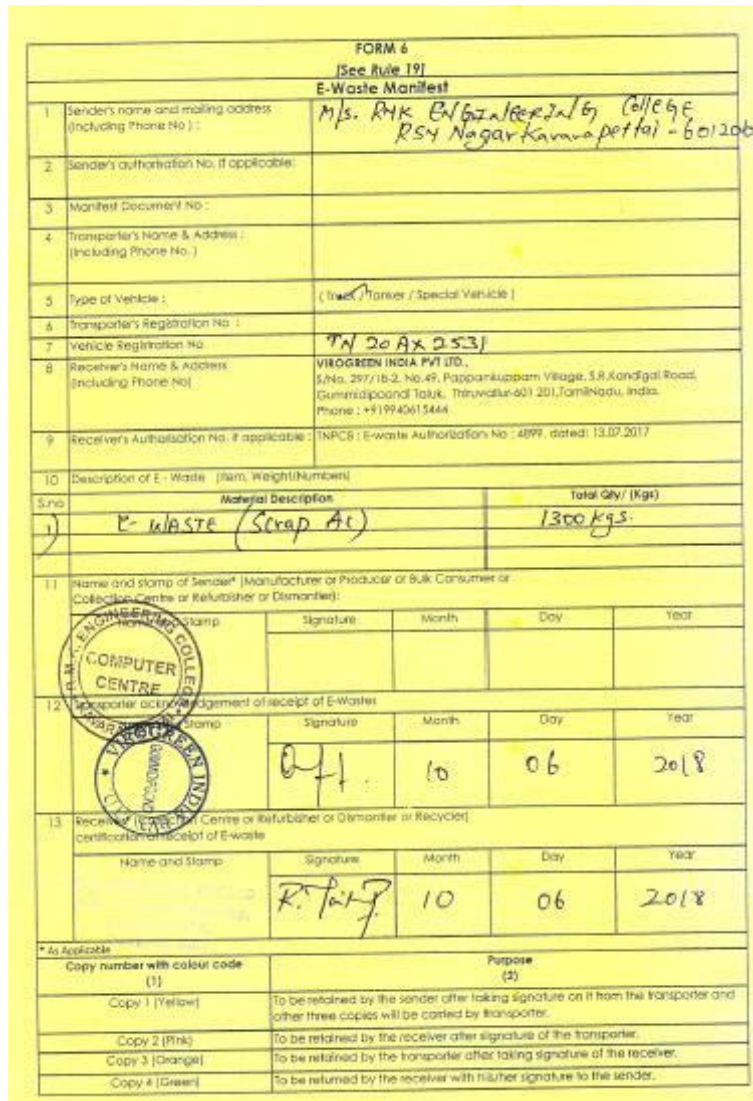 FORM 6
[See Rule 19]
E-Waste Manifest
1 Sender's name and mailing address
(Including Phone No) :
M/s. RMK ENGINEERING COllEGE
RSM Nagar Kavarapettai - 601206
2 Sender's authorisation No. if applicable:
3 Manifest Document No :
4 Transporter's Name & Address :
(Including Phone No. )
5 Type of Vehicle : ( Truck / Tanker / Special Vehicle )
6 Transporter's Registration No :
7 Vehicle Registration No TN 20 AX 2531
8 Receiver's Name & Address
(Including Phone No)
VIROGREEN INDIA PVT LTD.,
S/No. 297/1B-2, No.49, Pappankuppam Village, S.R.Kandigai Road,
Gummidipoondi Taluk, Thiruvallur-601 201, TamilNadu, India.
Phone : +919940615444
9 Receiver's Authorisation No. if applicable : TNPCB : E-waste Authorization No : 4899, dated: 13.07.2017
10 Description of E - Waste (Item, Weight/Numbers)
S.no Material Description Total Qty/ (Kgs)
1) E- WASTE (Scrap Ac) 1300 kgs.
11 Name and stamp of Sender* (Manufacturer or Producer or Bulk Consumer or
Collection Centre or Refurbisher or Dismantler):
Stamp Signature Month Day Year
ENGINEERING COLLEGE
COMPUTER
CENTRE
12 Transporter acknowledgement of receipt of E-Wastes
Stamp Signature Month Day Year
10 06 2018
VIROGREEN INDIA
13 Receiver* (Collection Centre or Refurbisher or Dismantler or Recycler)
certification of receipt of E-waste
Name and Stamp Signature Month Day Year
10 06 2018
* As Applicable
Copy number with colour code
(1)
Purpose
(2)
Copy 1 (Yellow) To be retained by the sender after taking signature on it from the transporter and
other three copies will be carried by transporter.
Copy 2 (Pink) To be retained by the receiver after signature of the transporter.
Copy 3 (Orange) To be retained by the transporter after taking signature of the receiver.
Copy 4 (Green) To be returned by the receiver with his/her signature to the sender.